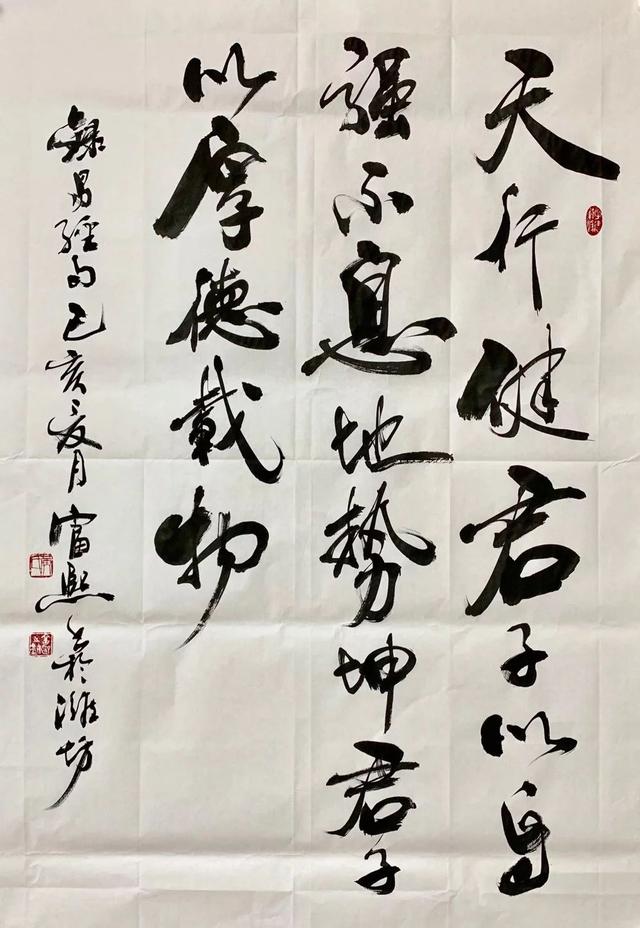 天行健君子以自
强不息地势坤君子
以厚德载物
录易经句己亥夏月富熙书于潍坊